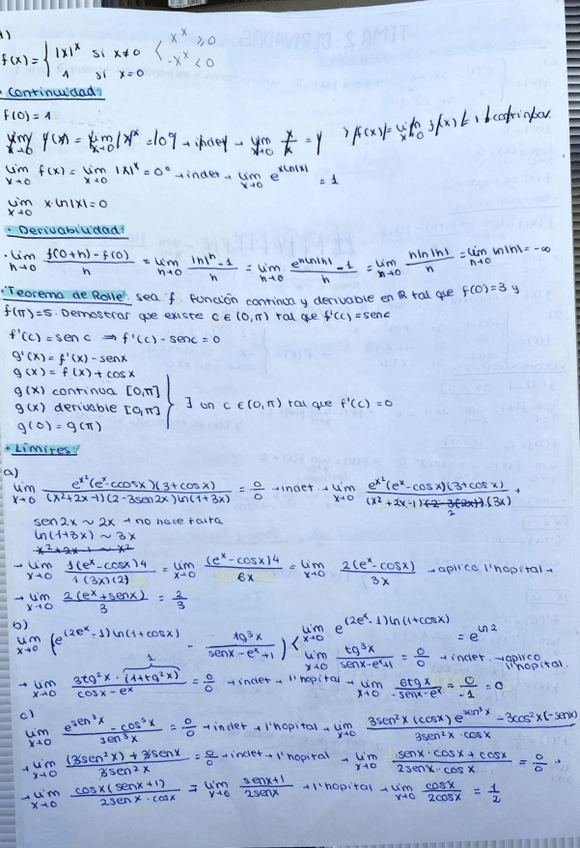 f(x) = { |x|^x si x≠0 < x^x ≥0
1 si x=0 -x^x <0
· Continuidad:
f(0) = 1
lim x→0 f(x) = lim x→0 |x|^x = 0⁰ → indet → lim x→0 e^{x ln|x|} = 1
lim x→0 x·ln|x| = 0
· Derivabilidad:
· lim h→0 f(0+h) - f(0) / h = lim h→0 |h|^h - 1 / h = lim h→0 e^{h ln|h|} - 1 / h = lim h→0 h ln|h| / h = lim h→0 ln|h| = -∞
· Teorema de Rolle: sea f función continua y derivable en ℝ tal que f(0)=3 y
f(π)=5. Demostrar que existe c ∈ (0,π) tal que f'(c) = senc
f'(c) = sen c ⇒ f'(c) - senc = 0
g'(x) = f'(x) - senx
g(x) = f(x) + cosx
g(x) continua [0,π]
g(x) derivable [0,π] } ∃ un c ∈ (0,π) tal que f'(c) = 0
g(0) = g(π)
· Límites:
a)
lim x→0 e^{x²}(e^x - cosx)(3+cosx) / (x²+2x-1)(2-3sen2x)ln(1+3x) = 0/0 → indet → lim x→0 e^{x²}(e^x - cosx)(3+cosx) / (x²+2x-1)(2-3(2x))(3x) →
2
sen2x ~ 2x → no hace falta
ln(1+3x) ~ 3x
x²+2x-1 ~ x²
→ lim x→0 1(e^x - cosx)4 / 1(3x)(2) = lim x→0 (e^x - cosx)4 / 6x = lim x→0 2(e^x - cosx) / 3x → aplico l'hopital →
→ lim x→0 2(e^x + senx) / 3 = 2/3
b)
lim x→0 (e^{(2e^x - 1)ln(1+cosx)} - tg³x / senx - e^x + 1) < lim x→0 e^{(2e^x - 1)ln(1+cosx)} = e^{ln2}
lim x→0 tg³x / senx - e^x + 1 = 0/0 → indet → aplico l'hopital.
→ lim x→0 3tg²x · (1+tg²x) / cosx - e^x = 0/0 → indet → l'hopital → lim x→0 6tgx / -senx - e^x = 0/-1 = 0
1
c)
lim x→0 e^{sen³x} - cos³x / sen³x = 0/0 → indet → l'hopital → lim x→0 3sen²x (cosx) e^{sen³x} - 3cos²x(-senx) / 3sen²x · cosx
→ lim x→0 (3sen²x) + 3senx / 3sen²x = 0/0 → indet → l'hopital → lim x→0 senx · cosx + cosx / 2senx · cosx = 0/0 →
→ lim x→0 cosx(senx+1) / 2senx · cosx = lim x→0 senx+1 / 2senx → l'hopital → lim x→0 cosx / 2cosx = 1/2